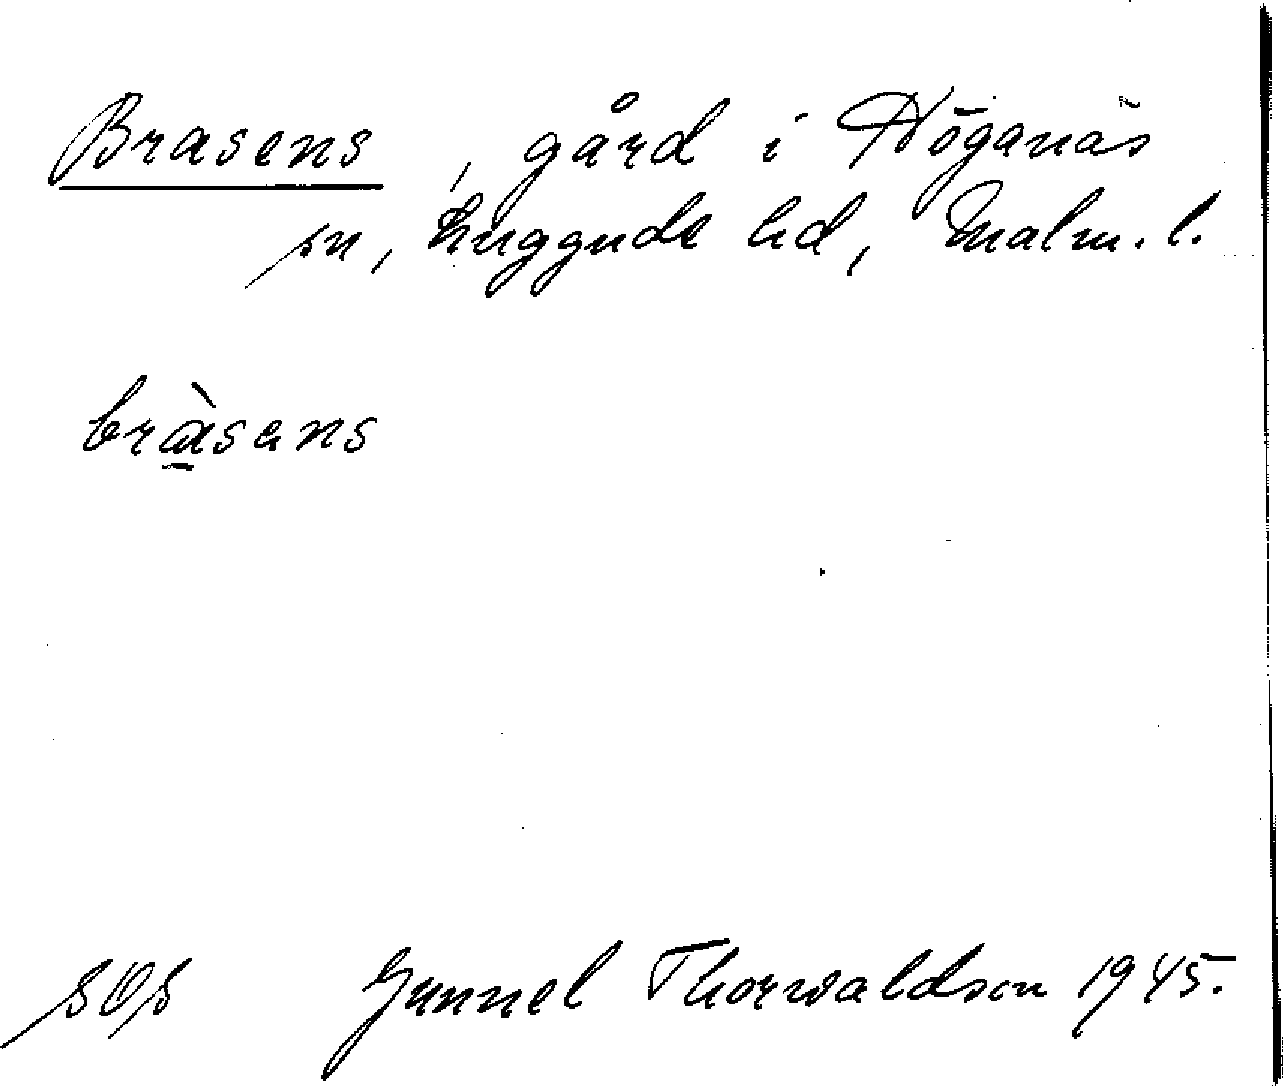 Brasens, gård i Höganäs
sn, Luggude hd, Malm. l.
bràsans
Gunnel Thorwaldson 1945.